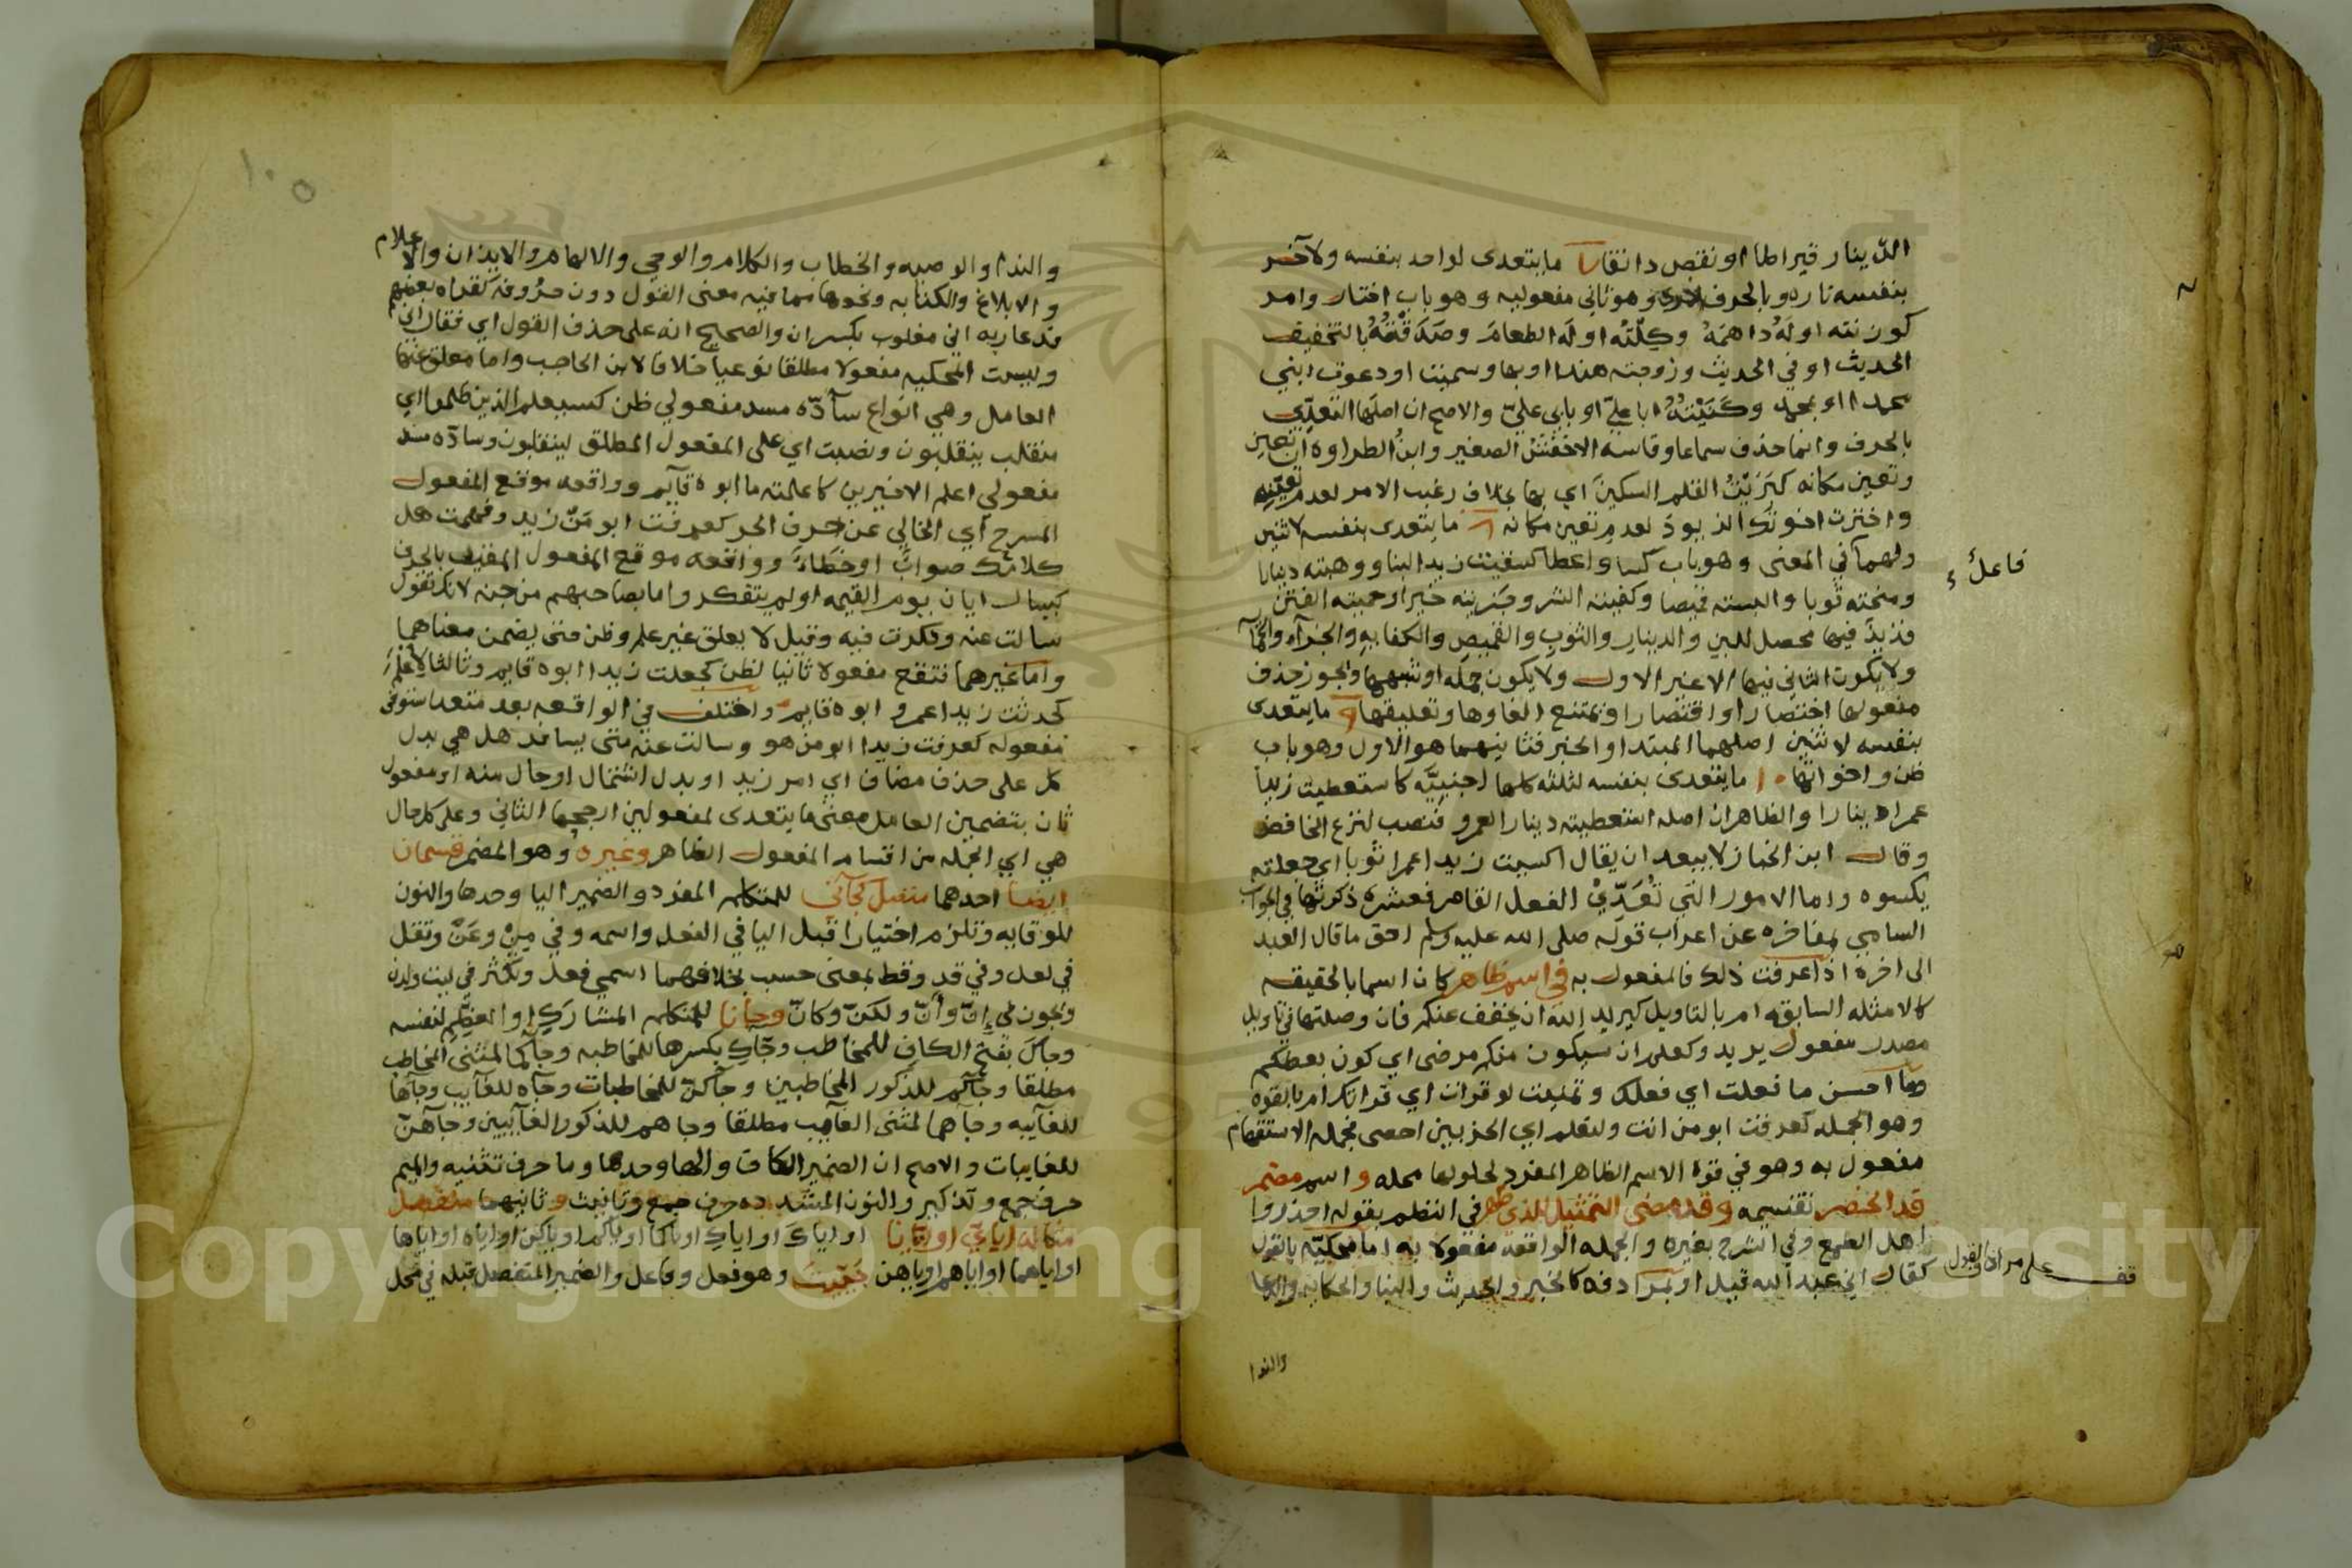 الدينار قيراطا او نقص دانقا ما يتعدى لواحد بنفسه ولآخر
بنفسه تارة وبالحرف اخرى وهو ثاني مفعوليه وهو باب اختار وامر
كوزنته اوله دراهمه وكلته اوله الطعام وصدقته بالتخفيف
الحديث او في الحديث وزوجته هندا او بها وسميت او دعوت ابني
محمدا او بمحمد وكنيته ابا علي او بابي علي والاصح ان اصلها التعدي
بالحرف وانما حذف سماعا وقاسه الاخفش الصغير وابن الطراوه ان تعين
وتعين مكانه كبريت القلم السكين اي بها بخلاف رغبت الامر لعدم تعينه
واخترت اخوتك الزيود لعدم تعين مكانه ما يتعدى بنفسه لاثنين
اولهما في المعنى وهو باب كسا واعطا كسقيت زيدا لبنا ووهبته دينارا
فاعل
ومنحته ثوبا والبسته قميصا وكفيته الشر وجزيته خيرا وحميته الفتن
فزيد فيها محصل للبن والدينار والثوب والقميص والكفاية والجزاء
ولا يكون الثاني فيها الا غير الاول ولا يكون جملة او شبهها ويجوز حذف
مفعولها اختصارا واقتصارا ويمتنع الغاوها وتعليقها ما يتعدى
بنفسه لاثنين اصلهما المبتدا والخبر فثانيهما هو الاول وهو باب
ظن واخواتها ما يتعدى بنفسه لثلثه كلها اجنبيه كاستعطيت زيدا
عمرا دينارا والظاهر ان اصله استعطيته دينارا لعمرو فنصب لنزع الخافض
وقال ابن الخباز لا يبعد ان يقال اكسيت زيدا عمرا ثوبا اي جعلته
يكسوه واما الامور التي تعدي الفعل القاصر فعشره ذكرتها في الجواب
السامي بمفاخره عن اعراب قوله صلى الله عليه وسلم احق ما قال العبد
الى اخره اذا عرفت ذلك فالمفعول به في اسم ظاهر كان اسما بالحقيقه
كالامثله السابقه ام بالتاويل كيريد الله ان يخفف عنكم فان وصلتها في تاويل
مصدر مفعول يريد وكعلم ان سيكون منكم مرضى اي كون بعضكم
وما احسن ما فعلت اي فعلك وتمنيت لو قرات اي قراتك ام بالقوه
وهو الجمله كعرفت ابو من انت ولنعلم اي الحزبين احصى فجمله الاستفهام
مفعول به وهو في قوة الاسم الظاهر المفرد لحلولها محله واسم مضمر
قد انحصر تقسيمه وقد مضى التمثيل للذي ظهر في النظم بقوله احذروا
اهل الطمع وفي الشرح بغيره والجمله الواقعه مفعولا به اما محكيه بالقول
كقال اني عبد الله قيل او بمرادفه كالخبر والحديث والنبا والحكايه والدعا
قف على مرادفي القول
والندا
١٠٥
والندا والوصيه والخطاب والكلام والوحي والالهام والايذان والاعلام
والابلاغ والكتابه ونحوها مما فيه معنى القول دون حروفه كقراه بعضهم
فدعا ربه اني مغلوب بكسر ان والصحيح انه على حذف القول اي فقال اني
وليست المحكيه مفعولا مطلقا نوعيا خلافا لابن الحاجب واما معلق عنها
العامل وهي انواع سآدّه مسد مفعولي ظن كسيعلم الذين ظلموا اي
منقلب ينقلبون ونصبت اي على المفعول المطلق لينقلبون وسآدّه مسد
مفعولي اعلم الاخيرين كاعلمته ما ابوه قآيم وواقعه موقع المفعول
المسرح اي الخالي عن حرف الجر كعرفت ابو مَن زيد وفهمت هل
كلامك صواب او خطأ وواقعه موقع المفعول المقيد بالجر
كيسال ايان يوم القيمه اولم يتفكروا ما بصاحبهم من جنه لانك تقول
سالت عنه وفكرت فيه وقيل لا يعلق غير علم وظن حتى يضمن معناهما
واما غيرهما فتقع مفعولا ثانيا لظن كجعلت زيدا ابوه قايم وثالثا لاعلم
كحدثت زيدا عمرو ابوه قايم واختلف في الواقعه بعد متعد استوفى
مفعوله كعرفت زيدا ابو من هو وسالت عنه متى يسافر هل هي بدل
كل على حذف مضاف اي امر زيد او بدل اشتمال او حال منه او مفعول
ثان بتضمين العامل معنى ما يتعدى لمفعولين ارجحها الثاني وعلى كل حال
هي اي الجمله من اقسام المفعول الظاهر وغيره وهو المضمر قسمان
ايضا احدهما متصل كجآني للمتكلم المفرد والضمير اليا وحدها والنون
للوقايه وتلزم اختيارا قبل اليا في الفعل واسمه وفي مِن وعَن وتقل
في لعل وفي قد وقط بمعنى حسب بخلافهما اسمي فعل وتكثر في ليت ولدن
وتجوز في اِنّ وأنّ ولكنّ وكانّ وجآنا للمتكلم المشارَك او المعظم لنفسه
وجآكَ بفتح الكاف للمخاطب وجآكِ بكسرها للمخاطبه وجآكما لمثنى المخاطب
مطلقا وجآكم للذكور المخاطبين وجآكنّ للمخاطبات وجآه للغآيب وجآها
للغآيبه وجآهما لمثنى الغآيب مطلقا وجاهم للذكور الغآيبين وجآهنّ
للغايبات والاصح ان الضمير الكاف والها وحدها وما حرف تثنيه والميم
حرف جمع وتذكير والنون المشدده حرف جمع وتانيث وثانيهما منفصل
مثاله اياي او ايانا او اياكَ او اياكِ او اياكما او اياكم او اياكن او اياه او اياها
او اياهما او اياهم او اياهن حييت وهو فعل وفاعل والضمير المنفصل قبله في محل